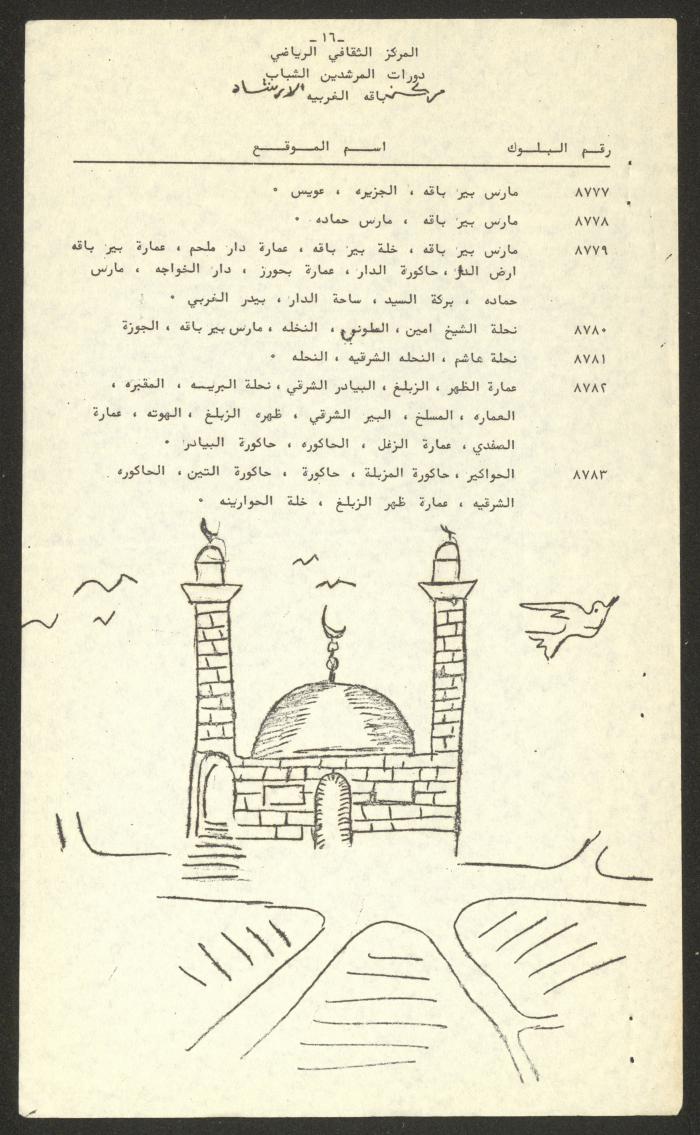 -١٦-
المركز الثقافي الرياضي
دورات المرشدين الشباب
مركز باقه الغربيه الارشاد
رقم البلوك اسم الموقع
٨٧٧٧ مارس بير باقه ، الجزيره ، عويس ٠
٨٧٧٨ مارس بير باقه ، مارس حماده ٠
٨٧٧٩ مارس بير باقه ، خلة بير باقه ، عمارة دار ملحم ، عمارة بير باقه
ارض الدار ، حاكورة الدار ، عمارة بحورز ، دار الخواجه ، مارس
حماده ، بركة السيد ، ساحة الدار ، بيدر الغربي ٠
٨٧٨٠ نحلة الشيخ امين ، ، النخله ، مارس بير باقه ، الجوزة
٨٧٨١ نحلة هاشم ، النحله الشرقيه ، النحله ٠
٨٧٨٢ عمارة الظهر ، الزبلغ ، البيادر الشرقي ، نحلة ، المقبره ،
العماره ، المسلخ ، البير الشرقي ، ظهره الزبلغ ، الهوته ، عمارة
الصفدي ، عمارة الزغل ، الحاكوره ، حاكورة البيادر ٠
٨٧٨٣ الحواكير ، حاكورة المزبلة ، حاكورة ، حاكورة التين ، الحاكوره
الشرقيه ، عمارة ظهر الزبلغ ، خلة الحوارينه ٠